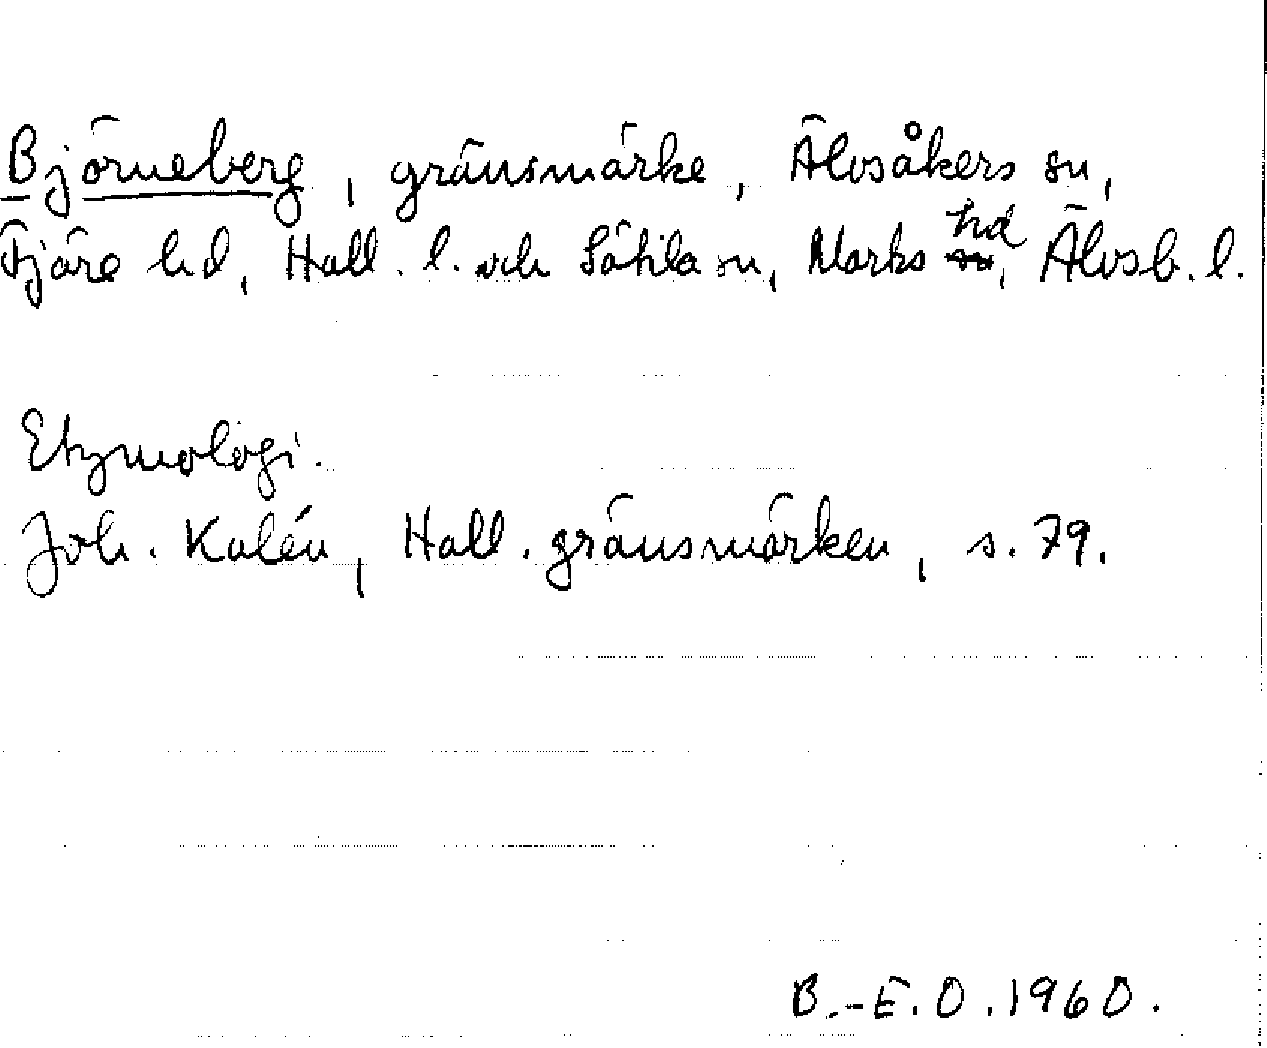 Björneberg, gränsmärke, Älvsåkers sn,
Fjäre hd, Hall. l. och Sätila sn, Marks hd, Älvsb. l.
Etymologi.
Joh. Kalén, Hall. gränsmärken, s. 79.
B.-E.O. 1960.